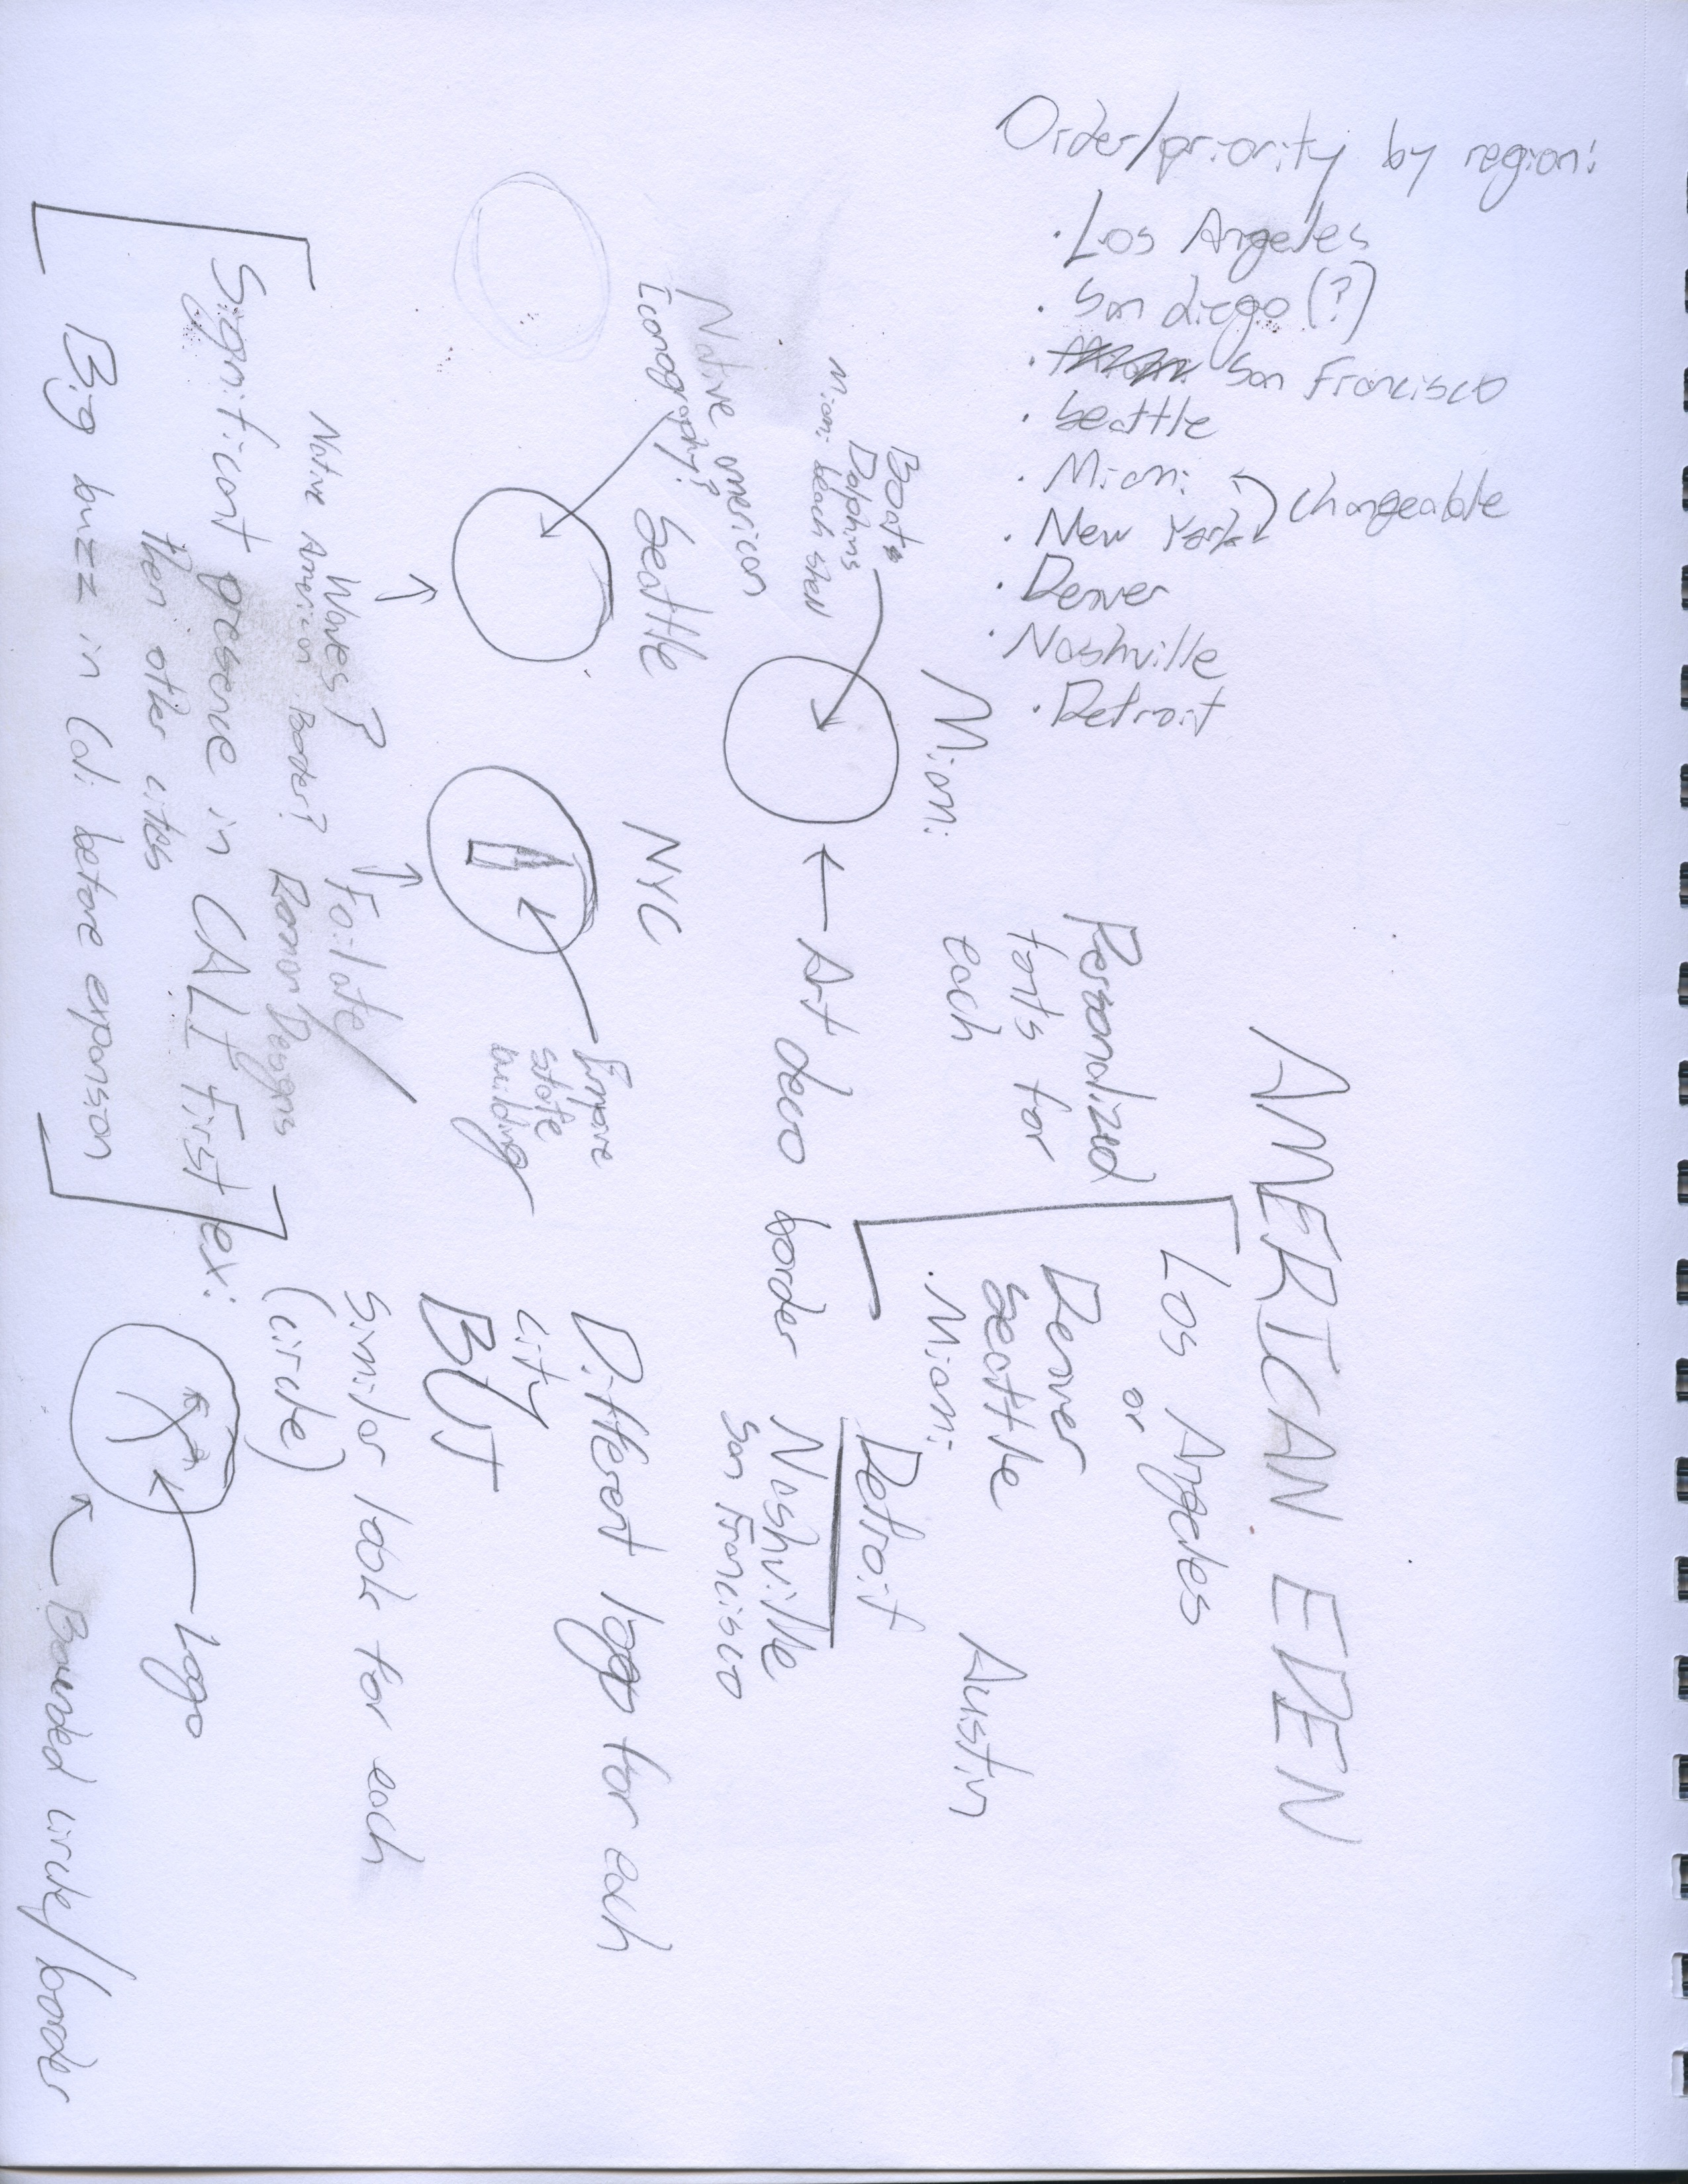 Order/priority by region:
· Los Angeles
· San diego (?)
· San Francisco
· Seattle
· Miami
· New York
changeable
· Denver
· Nashville
· Detroit
AMERICAN EDEN
Los Angeles
or
Denver
Seattle
· Miami
Austin
Detroit
Nashville
San Francisco
Personalized
fonts for
each
Miami
Boats
Dolphins
Miami beach shell
← Art deco border
Native american
Iconography?
Seattle
NYC
Empire
state
building
Different logo for each
city
BUT
Similar look for each
(circle)
Waves?
Native American Border?
Foilate/
Roman Designs
Significant presence in CALI first
then other cites
Big buzz in Cali before expansion
ex:
Logo
Bounded circle/boarder